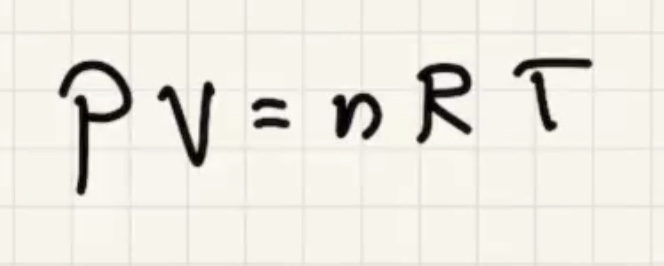 PV = nRT